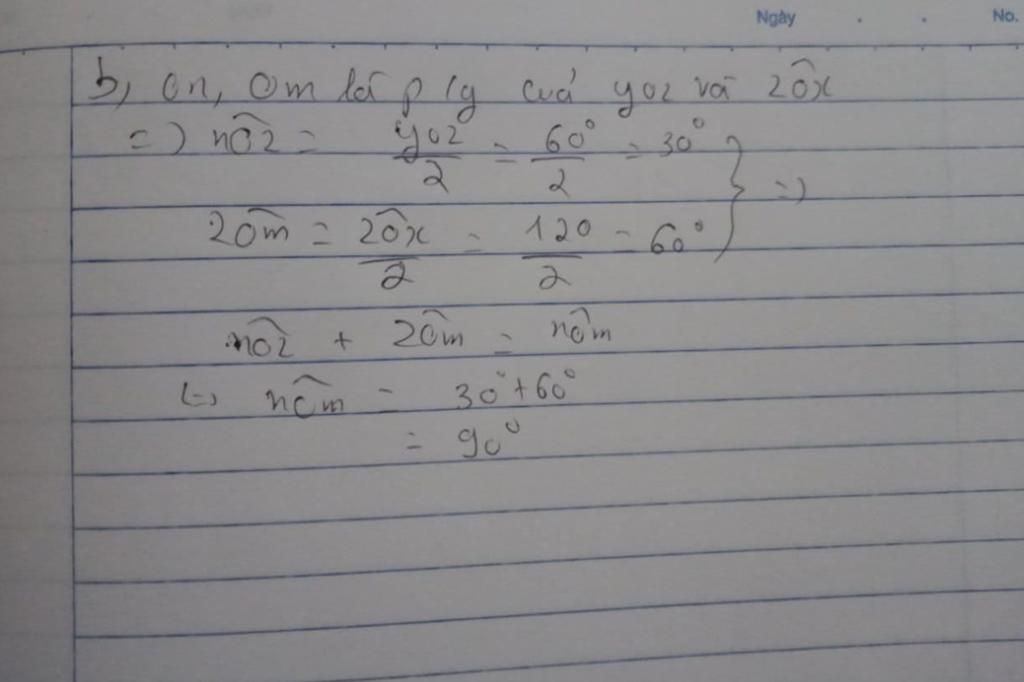 Ngày . . No.
b, On, Om là p/g của yoz và zôx
=) nôz = yoz/2 = 60°/2 = 30° } =)
zôm = zôx/2 = 120/2 = 60°
nôz + zôm = nôm
(=) nôm = 30° + 60°
= 90°